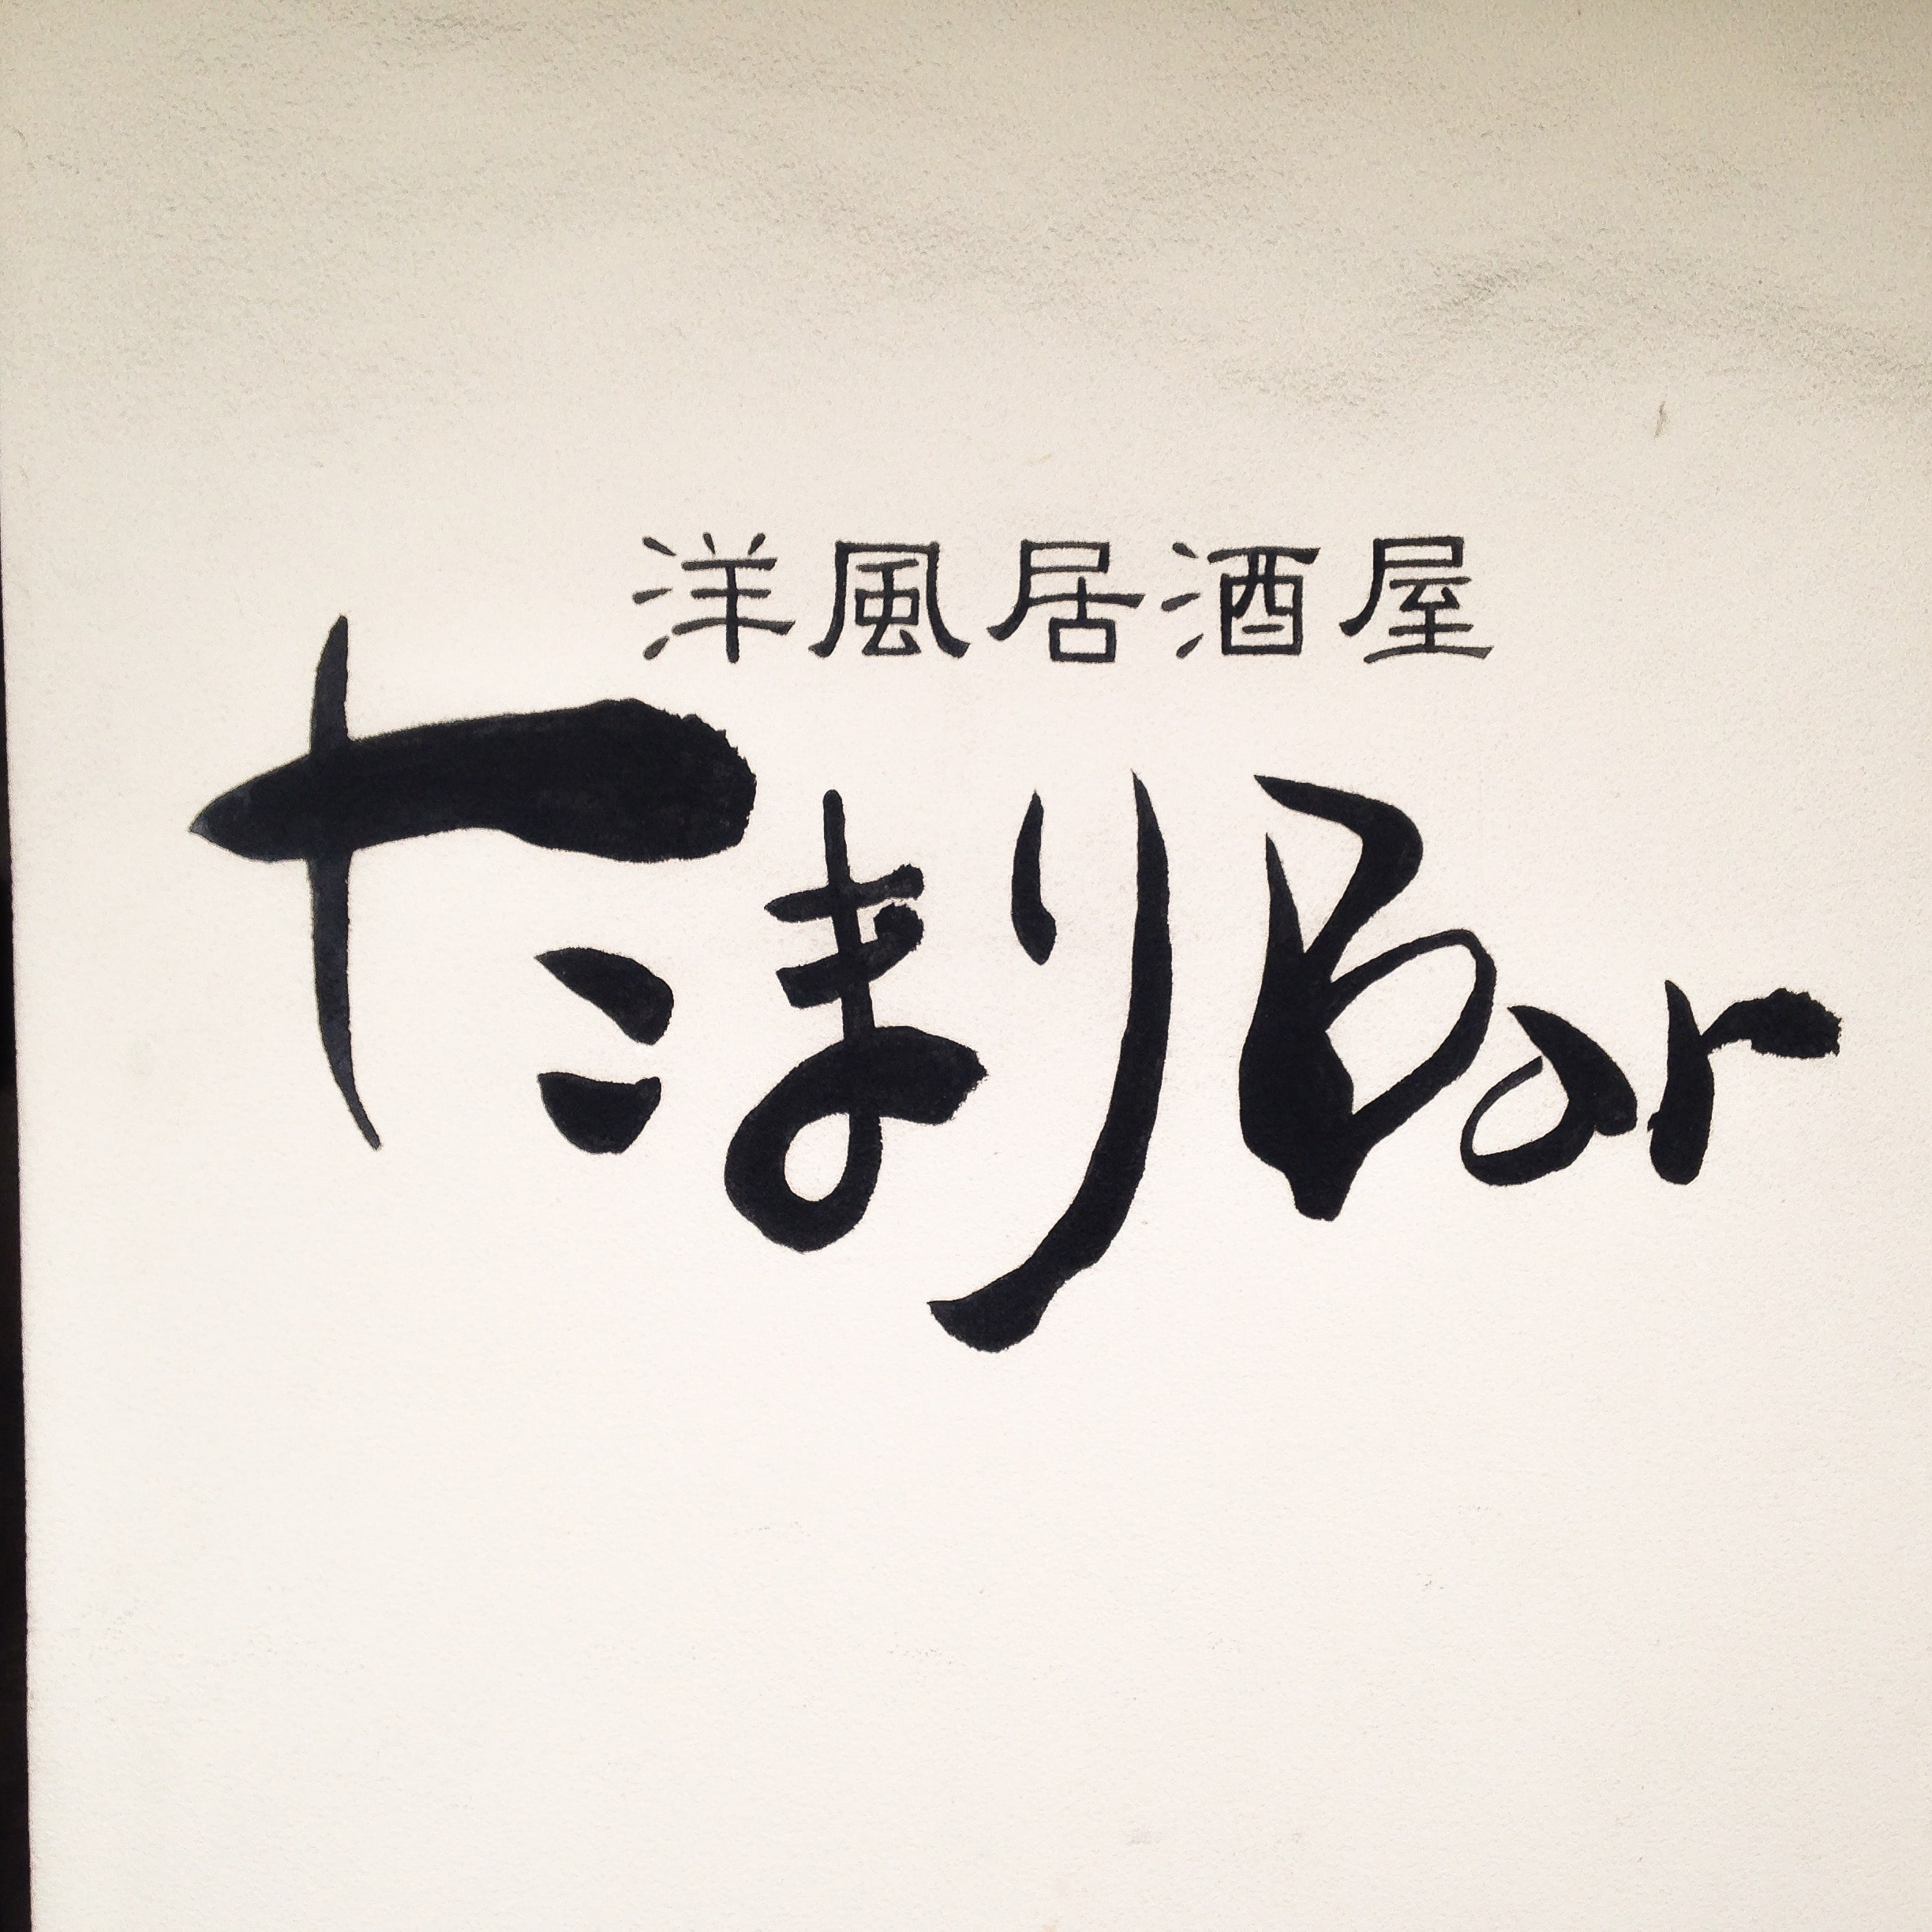 洋風居酒屋
たまりBar